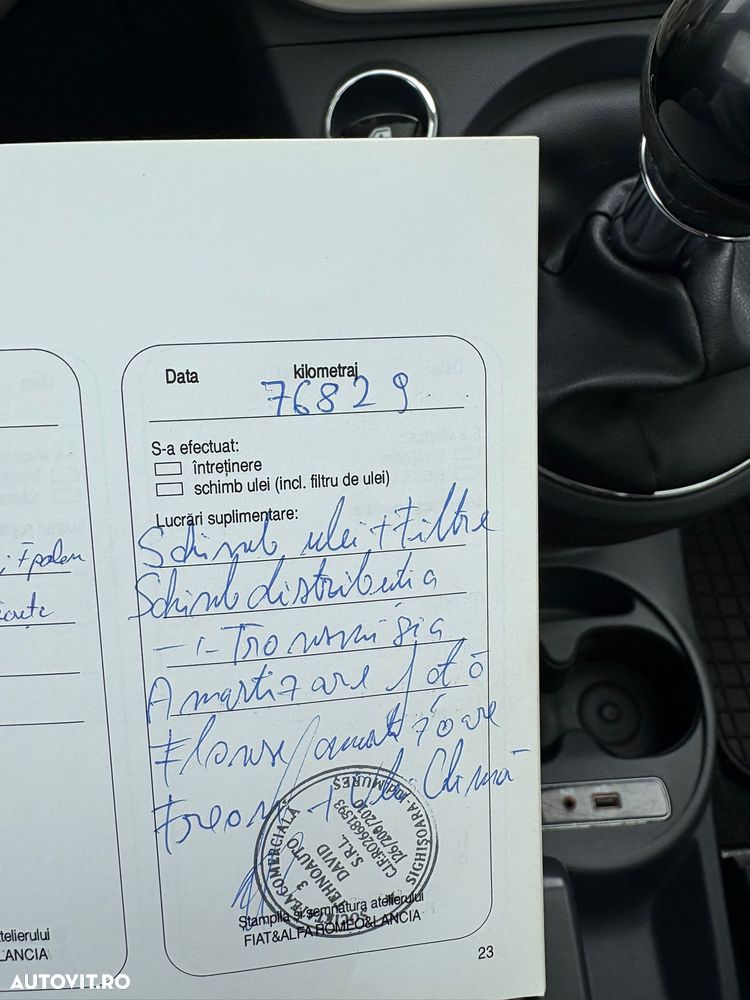 Data kilometraj
76829
S-a efectuat:
întreținere
schimb ulei (incl. filtru de ulei)
Lucrări suplimentare:
Schimb ulei + Filtre
Schimb distributia
-1- Transmisia
Amortizare fată
Flanse amortizoare
Freon + Ulei Climă
SOCIETATEA COMERCIALĂ
TEHNOAUTO
DAVID
S.R.L.
3
SIGHIȘOARA-MUREȘ
Ștampila și semnătura atelierului
FIAT&ALFA ROMEO&LANCIA
23
telierului
LANCIA
AUTOVIT.RO